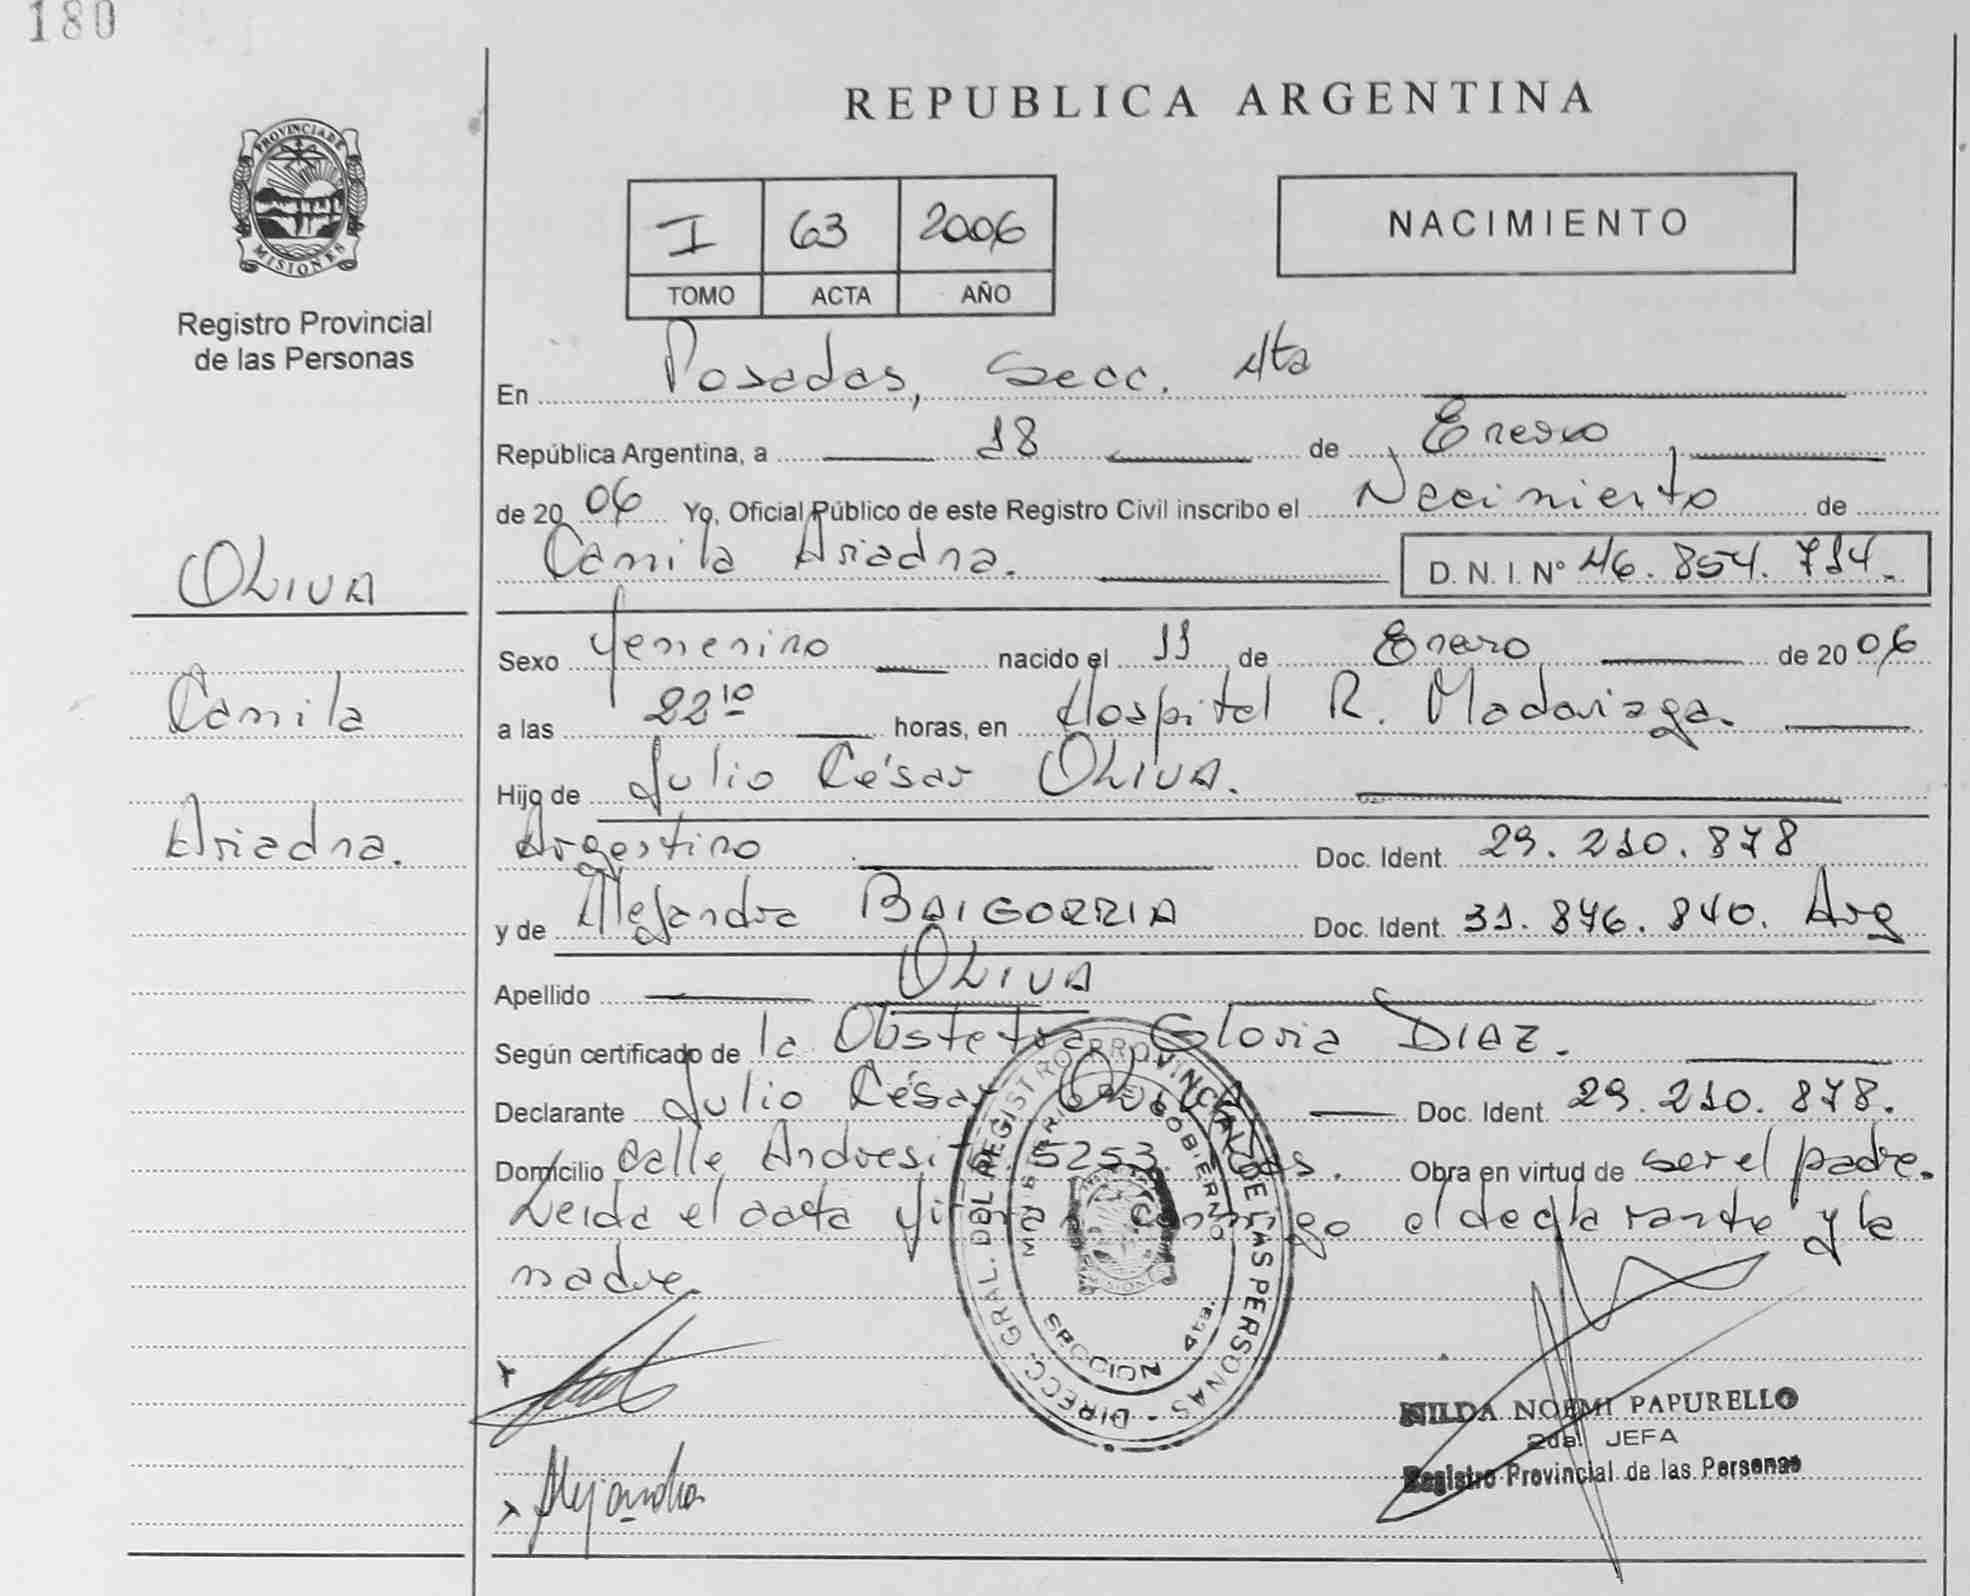 180
PROVINCIA DE
MISIONES
Registro Provincial
de las Personas
OLIVA
Camila
Ariadna.
REPUBLICA ARGENTINA
I 63 2006
TOMO ACTA AÑO
NACIMIENTO
En Posadas, Secc. 4ta
República Argentina, a 18 de Enero
de 2006 Yo, Oficial Público de este Registro Civil inscribo el Nacimiento de
Camila Ariadna. D. N. I. Nº 46.854.714.
Sexo femenino nacido el 11 de Enero de 2006
a las 22¹⁰ horas, en Hospital R. Madariaga.
Hijo de Julio César OLIVA.
Argentino Doc. Ident. 29.210.878
y de Alejandra BAIGORRIA Doc. Ident. 31.846.840. Arg
Apellido OLIVA
Según certificado de la Obstetra Gloria DIAZ.
Declarante Julio César OLIVA Doc. Ident. 29.210.878.
Domicilio calle Andresito 5253. Pdas. Obra en virtud de ser el padre.
Leida el acta firman conmigo el declarante y la
madre
DIRECC. GRAL. DEL REGISTRO PROVINCIAL DE LAS PERSONAS -
MINISTERIO DE GOBIERNO
SECCION 4ta.
Alejandra
NILDA NOEMI PAPURELLO
2da. JEFA
Registro Provincial de las Personas